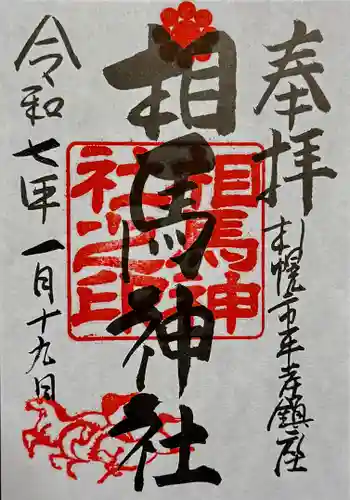 奉拝
札幌市平岸鎮座
相馬神社
相馬神
社之印
令和七年一月十九日